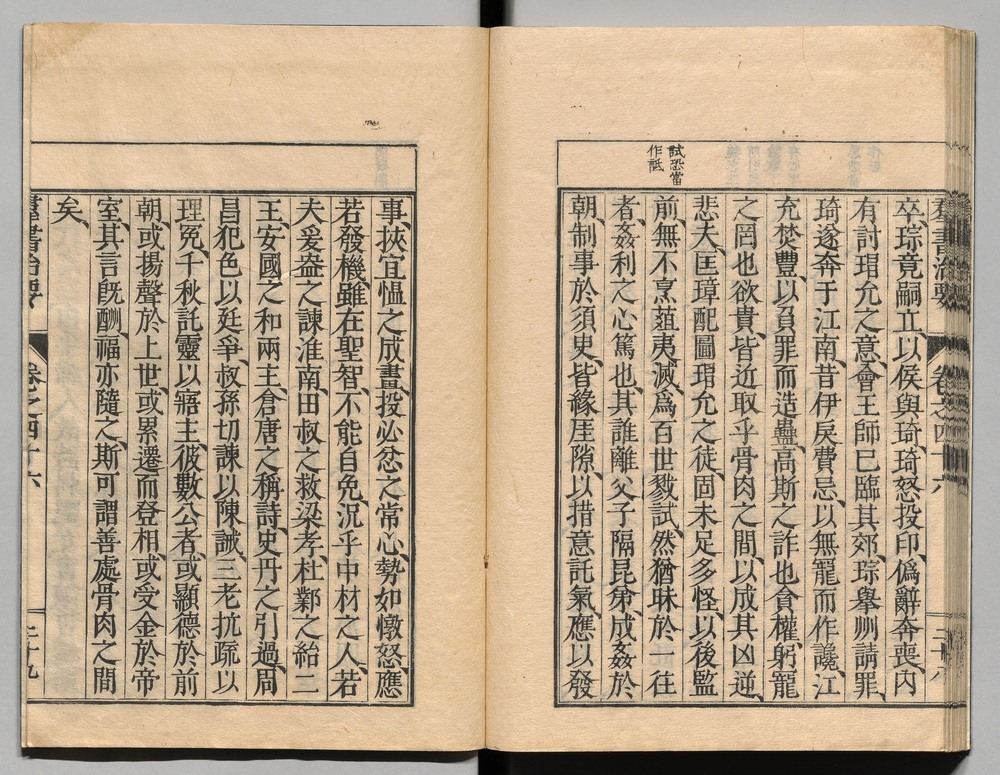 羣書治要　卷之四十六　二十八
試恐當
作詆
卒、琮竟嗣立、以侯與琦、琦怒投印、僞辭奔喪、內
有討瑁允之意、會王師已臨其郊、琮舉州請罪、
琦遂奔于江南、昔伊戾費忌、以無寵而作讒、江
充焚豐、以負罪而造蠱、高斯之詐也貪權、躬寵
之罔也欲貴、皆近取乎骨肉之間、以成其凶逆、
悲夫、匡璋配圖瑁允之徒、固未足多怪、以後監
前、無不烹葅夷滅、爲百世戮試、然猶昧於一往
者、姦利之心篤也、其誰離父子隔昆弟、成姦於
朝、制事於須臾、皆緣厓隙、以措意託氣、應以發
事、挾宜慍之成畫、投必忿之常心、勢如憞怒、應
若發機、雖在聖智、不能自免、況乎中材之人、若
夫爰盎之諫淮南、田叔之救梁孝、杜鄴之紿二
王、安國之和兩主、倉唐之稱詩、史丹之引過、周
昌犯色以廷爭、叔孫切諫以陳誡、三老抗疏以
理冤、千秋託靈以寤主、彼數公者、或顯德於前
朝、或揚聲於上世、或累遷而登相、或受金於帝
室、其言旣酬、福亦隨之、斯可謂善處骨肉之間
矣、
羣書治要　卷之四十六　二十九